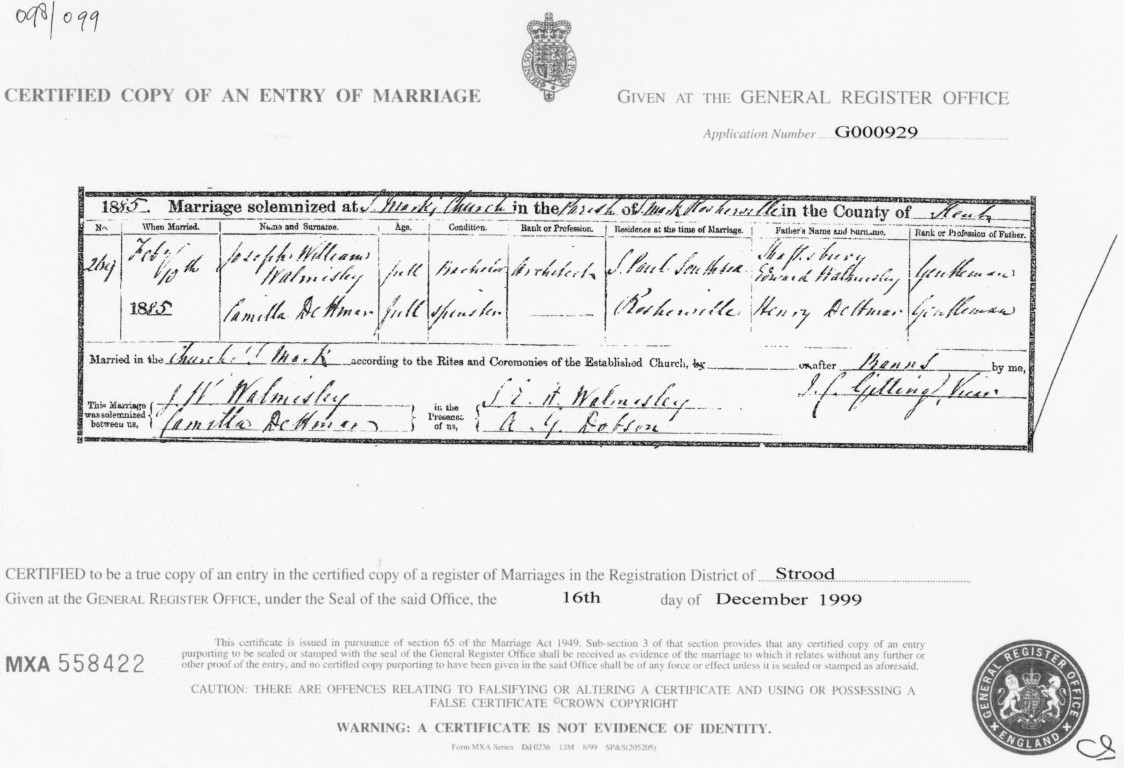 098/099
CERTIFIED COPY OF AN ENTRY OF MARRIAGE
GIVEN AT THE GENERAL REGISTER OFFICE
Application Number G000929
1885. Marriage solemnized at S. Mark's Church in the Parish of S. Mark Rosherville in the County of Kent
No. When Married. Name and Surname. Age. Condition. Rank or Profession. Residence at the time of Marriage. Father's Name and Surname. Rank or Profession of Father.
Feby 10th Joseph William Walmisley full Bachelor Architect S. Paul Southsea Shaftesbury Edward Walmisley Gentleman
1885 Camilla Dettmar full Spinster Rosherville Henry Dettmar Gentleman
Married in the Church S. Mark according to the Rites and Ceremonies of the Established Church, by or after Banns by me,
This Marriage was solemnized between us, J W Walmisley in the Presence of us, S. E. W. Walmisley J. C. Gilling, Vicar
Camilla Dettmar A. Y. Dobson
CERTIFIED to be a true copy of an entry in the certified copy of a register of Marriages in the Registration District of Strood
Given at the GENERAL REGISTER OFFICE, under the Seal of the said Office, the 16th day of December 1999
This certificate is issued in pursuance of section 65 of the Marriage Act 1949. Sub-section 3 of that section provides that any certified copy of an entry
purporting to be sealed or stamped with the seal of the General Register Office shall be received as evidence of the marriage to which it relates without any further or
other proof of the entry, and no certified copy purporting to have been given in the said Office shall be of any force or effect unless it is sealed or stamped as aforesaid.
MXA 558422
CAUTION: THERE ARE OFFENCES RELATING TO FALSIFYING OR ALTERING A CERTIFICATE AND USING OR POSSESSING A
FALSE CERTIFICATE ©CROWN COPYRIGHT
WARNING: A CERTIFICATE IS NOT EVIDENCE OF IDENTITY.
Form MXA Series Dd 0236 13M 8/99 SP&S(205205)
GENERAL REGISTER OFFICE
ENGLAND